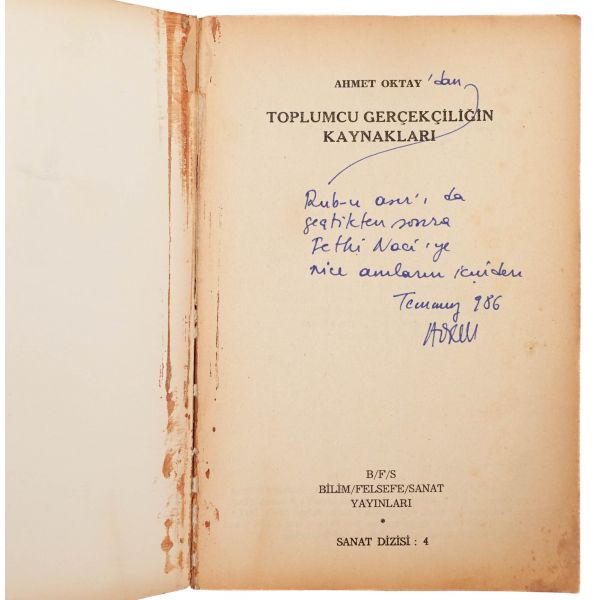 AHMET OKTAY'dan,
TOPLUMCU GERÇEKÇİLİĞİN
KAYNAKLARI
Rub-u asır'ı da
geçtikten sonra
Fethi Naci'ye
nice anıların içinden
Temmuz 986
B/F/S
BİLİM/FELSEFE/SANAT
YAYINLARI
SANAT DİZİSİ : 4